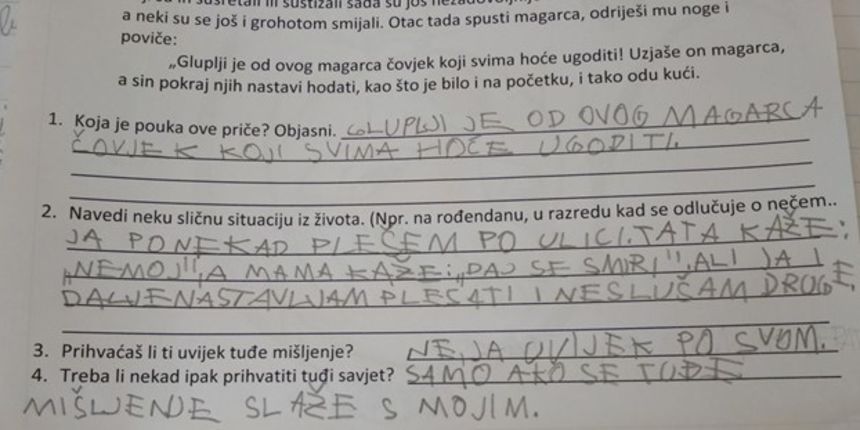 a neki su se još i grohotom smijali. Otac tada spusti magarca, odriješi mu noge i
poviče:
„Gluplji je od ovog magarca čovjek koji svima hoće ugoditi! Uzjaše on magarca,
a sin pokraj njih nastavi hodati, kao što je bilo i na početku, i tako odu kući.
1. Koja je pouka ove priče? Objasni. GLUPLJI JE OD OVOG MAGARCA
ČOVJEK KOJI SVIMA HOĆE UGODITI.
2. Navedi neku sličnu situaciju iz života. (Npr. na rođendanu, u razredu kad se odlučuje o nečem..
JA PONEKAD PLEŠEM PO ULICI. TATA KAŽE:
„NEMOJ", A MAMA KAŽE: „DAJ SE SMIRI", ALI JA I
DALJE NASTAVLJAM PLESATI I NESLUŠAM DROGE,
3. Prihvaćaš li ti uvijek tuđe mišljenje? NE, JA UVIJEK PO SVOM.
4. Treba li nekad ipak prihvatiti tuđi savjet? SAMO AKO SE TUĐE
MIŠLJENJE SLAŽE S MOJIM.